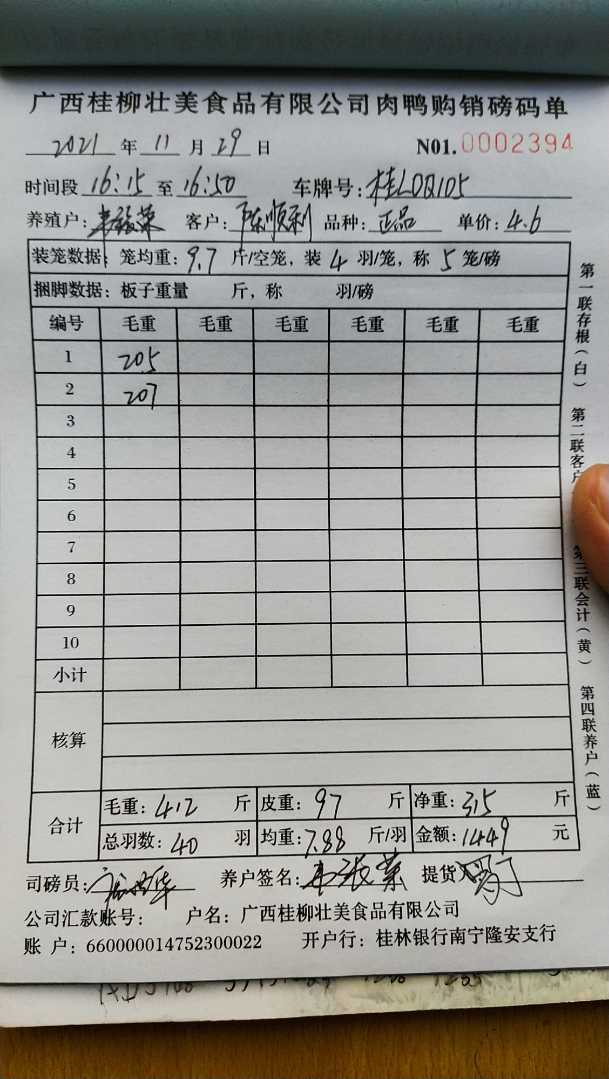 广西桂柳壮美食品有限公司肉鸭购销磅码单
2021 年 11 月 29 日 N01.0002394
时间段 16:15 至 16:50 车牌号: 桂L0Q105
养殖户: 客户: 陈顺利 品种: 正品 单价: 4.6
装笼数据: 笼均重: 9.7 斤/空笼, 装 4 羽/笼, 称 5 笼/磅
捆脚数据: 板子重量 斤, 称 羽/磅
编号 毛重 毛重 毛重 毛重 毛重 毛重
1 205
2 207
3
4
5
6
7
8
9
10
小计
核算
合计 毛重: 412 斤 皮重: 97 斤 净重: 315 斤
总羽数: 40 羽 均重: 7.88 斤/羽 金额: 1449 元
司磅员: 养户签名: 提货
公司汇款账号: 户名: 广西桂柳壮美食品有限公司
账 户: 660000014752300022 开户行: 桂林银行南宁隆安支行
第一联存根(白) 第二联客户 第三联会计(黄) 第四联养户(蓝)